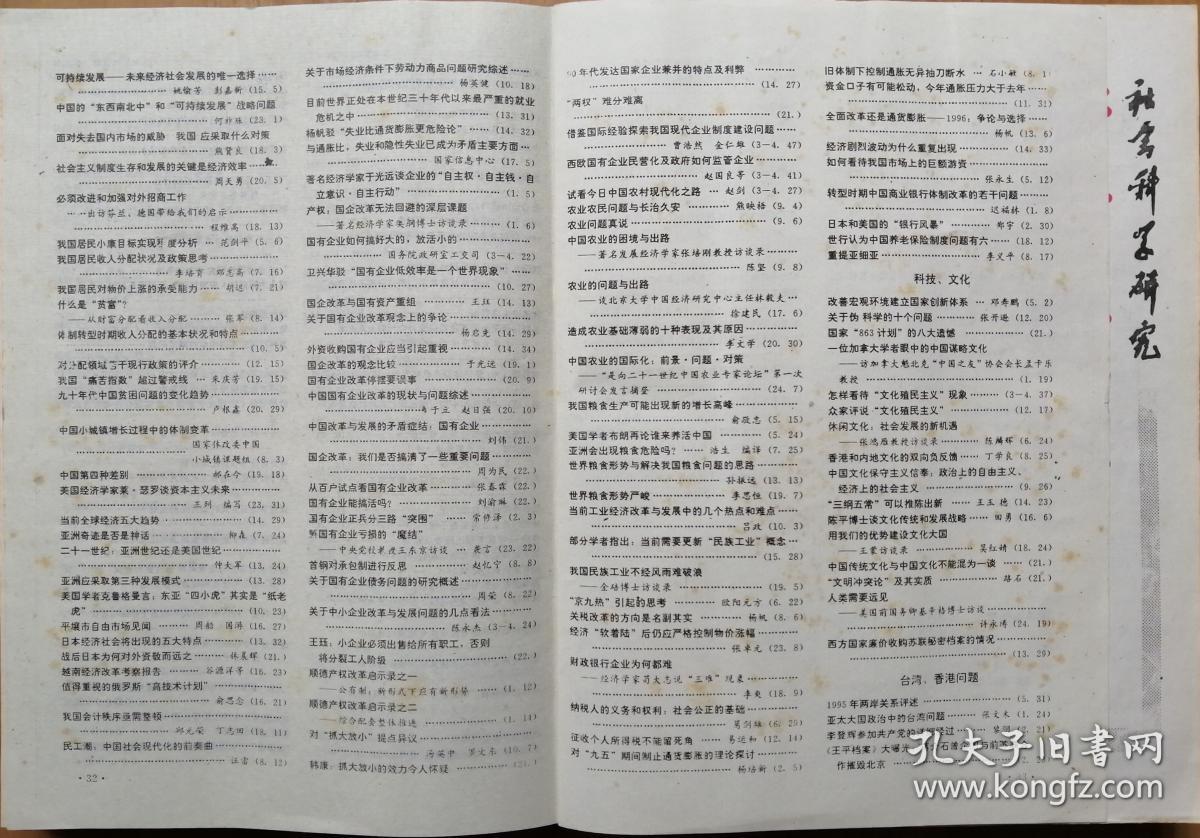 可持续发展——未来经济社会发展的唯一选择……
姚愉芳 彭嘉新 (15. 5)
中国的“东西南北中”和“可持续发展”战略问题
(23. 1)
面对失去国内市场的威胁 我国应采取什么对策
熊贤良 (18. 3)
社会主义制度生存和发展的关键是经济效率……
周天勇 (20. 5)
必须改进和加强对外招商工作
……出访芬兰、德国带给我们的启示……
程维高 (18. 13)
我国居民小康目标实现程度分析 … 范剑平 (5. 6)
我国居民收入分配状况及政策思考……
李培育 邓志高 (7. 16)
我国居民对物价上涨的承受能力…… 胡迟 (7. 21)
什么是“贫富”?
——从财富分配看收入分配…… 张军 (8. 14)
体制转型时期收入分配的基本状况和特点……
(10. 5)
对分配领域若干现行政策的评介…… (12. 15)
我国“痛苦指数”超过警戒线 … 朱庆芳 (19. 15)
九十年代中国贫困问题的变化趋势……
卢根鑫 (20. 29)
中国小城镇增长过程中的体制变革……
国家体改委中国
小城镇课题组 (8. 3)
中国第四种差别…… 郝在今 (19. 18)
美国经济学家莱·瑟罗谈资本主义未来……
王列 编写 (23. 31)
当前全球经济五大趋势…… (14. 29)
亚洲奇迹是否是神话…… 柳森 (7. 24)
二十一世纪:亚洲世纪还是美国世纪……
仲大军 (13. 24)
亚洲应采取第三种发展模式…… (13. 28)
美国学者克鲁格曼言:东亚“四小虎”其实是“纸老
虎”…… (10. 23)
平壤市自由市场见闻…… 周船 国海 (16. 27)
日本经济社会将出现的五大特点…… (13. 32)
战后日本为何对外资敬而远之…… 林晨辉 (21. )
越南经济改革考察报告…… 谷源洋等 (16. 23)
值得重视的俄罗斯“高技术计划”……
俞思念 (16. 21)
我国会计秩序亟需整顿……
邱元荣 丁志田 (18. 11)
民工潮:中国社会现代化的前奏曲……
汪雷 (8. 12)
·32·
关于市场经济条件下劳动力商品问题研究综述……
杨英健 (10. 18)
目前世界正处在本世纪三十年代以来最严重的就业
危机之中…… (13. 31)
杨帆驳“失业比通货膨胀更危险论”…… (14. 32)
与通胀比,失业和隐性失业已成为矛盾主要方面…
国家信息中心 (17. 5)
著名经济学家于光远谈企业的“自主权·自主钱·自
立意识·自主行动”…… (1. 5)
产权:国企改革无法回避的深层课题
——著名经济学家吴稼祥博士访谈录…… (1. 6)
国有企业如何搞好大的,放活小的……
国务院政研室工交司 (3—4. 22)
卫兴华驳“国有企业低效率是一个世界现象”…
(10. 27)
国企改革与国有资产重组…… 王珏 (14. 13)
关于国有企业改革观念上的争论……
杨启先 (14. 29)
外资收购国有企业应当引起重视…… (14. 34)
国企改革的观念比较…… 于光远 (19. 1)
国有企业改革停摆要误事…… (20. 9)
中国国有企业改革的现状与问题综述……
于立 赵日强 (20. 10)
中国改革与发展的矛盾症结:国有企业……
刘伟 (21. )
国企改革:我们是否搞清了一些重要问题……
周为民 (22. )
从百户试点看国有企业改革…… 张春霖 (22. )
国有企业能搞活吗?…… 刘瑜琳 (22. )
国有企业正兵分三路“突围”…… 常修泽 (2. 3)
解国有企业亏损的“魔结”
——中央党校教授王东京访谈…… 袭言 (23. 22)
首钢对承包制进行反思…… 赵忆宁 (8. 8)
关于国有企业债务问题的研究概述……
周荣 (8. 22)
关于中小企业改革与发展问题的几点看法……
陈永杰 (3—4. 24)
王珏:小企业必须出售给所有职工,否则
将分裂工人阶级…… (22. )
顺德产权改革启示录之一
——公有制:新形式下应有新形势…… (1. 12)
顺德产权改革启示录之二
——综合配套整体推进…… (1. 14)
对“抓大放小”提点异议……
汤英中 罗文东 (10. 7)
韩康:抓大放小的效力令人怀疑…… (21. )
90年代发达国家企业兼并的特点及利弊……
(14. 27)
“两权”难分难离
(21. )
借鉴国际经验探索我国现代企业制度建设问题……
曹浩然 金仁雄 (3—4. 47)
西欧国有企业民营化及政府如何监管企业……
赵国良等 (3—4. 41)
试看今日中国农村现代化之路 … 赵剑 (3—4. 27)
农业农民问题与长治久安…… 熊映梧 (9. 4)
农业问题真说…… (9. 6)
中国农业的困境与出路
——著名发展经济学家张培刚教授访谈录……
陈坚 (9. 8)
农业的问题与出路
——谈北京大学中国经济研究中心主任林毅夫…
徐建民 (17. 6)
造成农业基础薄弱的十种表现及其原因……
李文学 (20. 30)
中国农业的国际化:前景·问题·对策
——“是向二十一世纪中国农业专家论坛”第一次
研讨会发言摘登…… (24. 7)
我国粮食生产可能出现新的增长高峰……
俞敬忠 (5. 15)
美国学者布朗再论谁来养活中国…… (5. 24)
亚洲会出现粮食危险吗?…… 浩生 编译 (7. 25)
世界粮食形势与解决我国粮食问题的思路……
孙振远 (13. 13)
世界粮食形势严峻…… 李思恒 (19. 7)
当前工业经济改革与发展中的几个热点和难点……
吕政 (10. 3)
部分学者指出:当前需要更新“民族工业”概念…
(15. 28)
我国民族工业不经风雨难破浪
——金碚博士访谈录…… (19. 5)
“京九热”引起的思考…… 欧阳元方 (6. 22)
关税改革的方向是名副其实…… 杨帆 (8. 6)
经济“软着陆”后仍应严格控制物价涨幅……
张卓元 (23. 8)
财政银行企业为何都难
——经济学家苟大志说“三难”现象……
李爽 (18. 9)
纳税人的义务和权利:社会公正的基础……
葛剑雄 (6. 29)
征收个人所得税不能留死角…… 易运和 (12. 14)
对“九五”期间制止通货膨胀的理论探讨……
杨培新 (2. 5)
旧体制下控制通胀无异抽刀断水 … 石小敏 (8. 1)
资金口子有可能松动,今年通胀压力大于去年……
(11. 31)
全面改革还是通货膨胀——1996:争论与选择……
杨帆 (13. 6)
经济剧烈波动为什么重复出现…… (14. 33)
如何看待我国市场上的巨额游资……
张永生 (5. 12)
转型时期中国商业银行体制改革的若干问题……
迟福林 (1. 8)
日本和美国的“银行风暴”…… 郑宇 (2. 30)
世行认为中国养老保险制度问题有六…… (18. 12)
重提亚细亚…… 李义平 (8. 17)
科技、文化
改善宏观环境建立国家创新体系 … 邓寿鹏 (5. 2)
关于伪科学的十个问题…… 张开逊 (12. 20)
国家“863计划”的八大遗憾…… (21. )
一位加拿大学者眼中的中国谋略文化
——访加拿大魁北克“中国之友”协会会长孟于乐
教授…… (1. 19)
怎样看待“文化殖民主义”现象…… (3—4. 37)
众家评说“文化殖民主义”…… (12. 17)
休闲文化:社会发展的新机遇
——张鸿雁教授访谈录…… 陈麟辉 (6. 24)
香港和内地文化的双向负反馈…… 丁学良 (8. 25)
中国文化保守主义信奉:政治上的自由主义、
经济上的社会主义…… (9. 26)
“三纲五常”可以推陈出新…… 王玉德 (14. 23)
陈平博士谈文化传统和发展战略…… 田勇 (16. 6)
用我们的优势建设文化大国
——王蒙访谈录…… 吴红婧 (18. 24)
中国传统文化与中国文化不能混为一谈…… (21. )
“文明冲突论”及其实质…… 路石 (21. )
人类需要远见
——美国前国务卿基辛格博士访谈……
许永涛 (24. 19)
西方国家廉价收购苏联秘密档案的情况……
(13. 29)
台湾、香港问题
1995年两岸关系评述…… (5. 31)
亚太大国政治中的台湾问题…… 张文木 (1. 24)
李登辉参加共产党的详细经过…
《王平档案》大曝光
作摧毁北京……
社会科学研究
孔夫子旧书网
www.kongfz.com